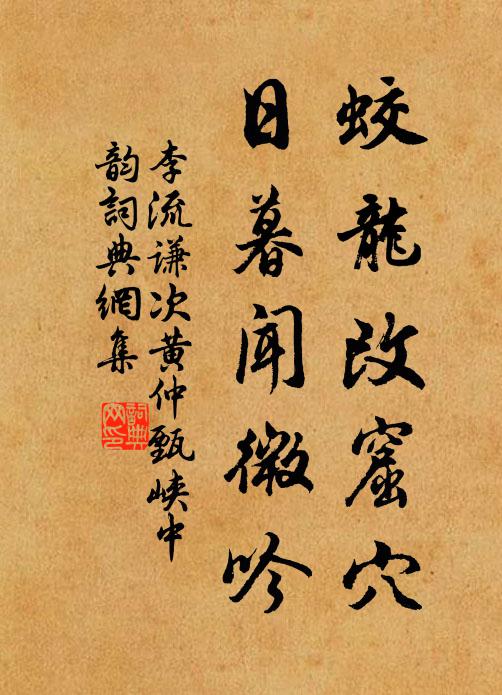 蛟龍改窟穴
日暮聞微吟
李流謙次黄仲甄峡中
韵詞典網集
詞典网印